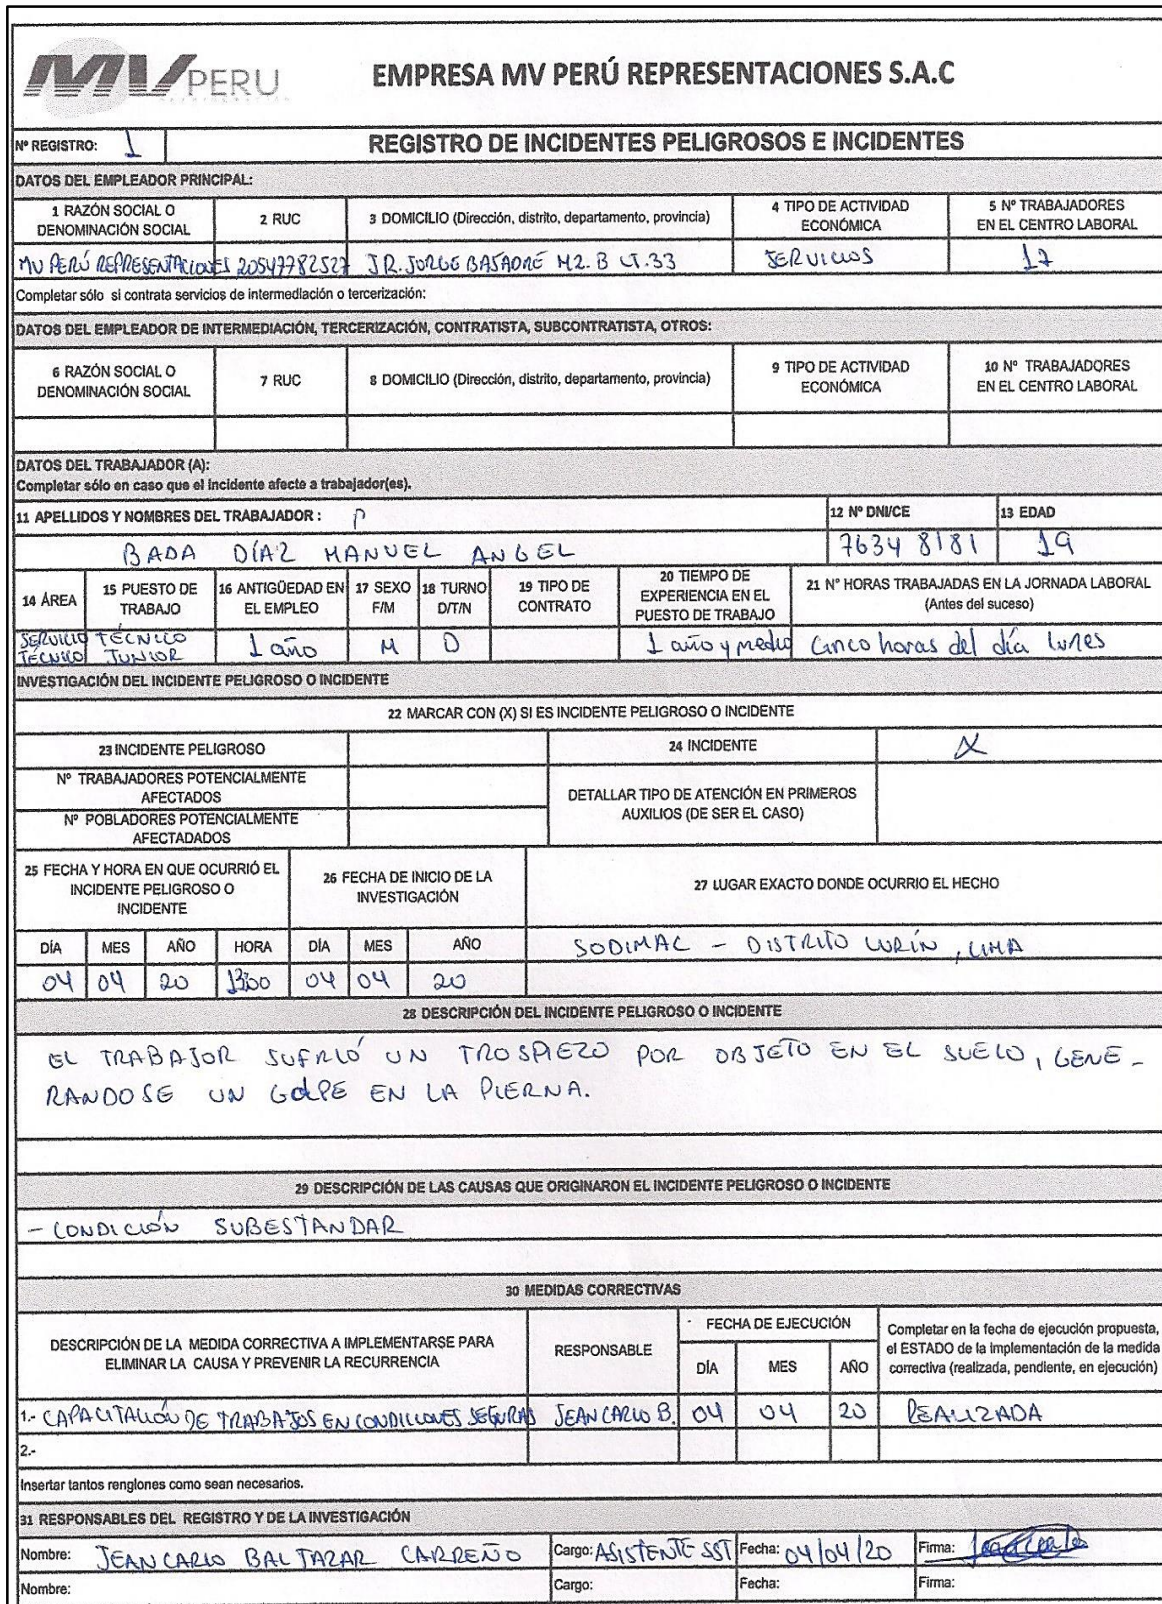 MV PERU
EMPRESA MV PERÚ REPRESENTACIONES S.A.C
Nº REGISTRO: 1
REGISTRO DE INCIDENTES PELIGROSOS E INCIDENTES
DATOS DEL EMPLEADOR PRINCIPAL:
1 RAZÓN SOCIAL O DENOMINACIÓN SOCIAL
2 RUC
3 DOMICILIO (Dirección, distrito, departamento, provincia)
4 TIPO DE ACTIVIDAD ECONÓMICA
5 Nº TRABAJADORES EN EL CENTRO LABORAL
MV PERÚ REPRESENTACIONES 20547782527 JR. JORGE BASADRE MZ. B LT.33 SERVICIOS 17
Completar sólo si contrata servicios de intermediación o tercerización:
DATOS DEL EMPLEADOR DE INTERMEDIACIÓN, TERCERIZACIÓN, CONTRATISTA, SUBCONTRATISTA, OTROS:
6 RAZÓN SOCIAL O DENOMINACIÓN SOCIAL
7 RUC
8 DOMICILIO (Dirección, distrito, departamento, provincia)
9 TIPO DE ACTIVIDAD ECONÓMICA
10 Nº TRABAJADORES EN EL CENTRO LABORAL
DATOS DEL TRABAJADOR (A):
Completar sólo en caso que el incidente afecte a trabajador(es).
11 APELLIDOS Y NOMBRES DEL TRABAJADOR :
12 Nº DNI/CE
13 EDAD
BADA DÍAZ MANUEL ANGEL 7634 8181 19
14 ÁREA
15 PUESTO DE TRABAJO
16 ANTIGÜEDAD EN EL EMPLEO
17 SEXO F/M
18 TURNO D/T/N
19 TIPO DE CONTRATO
20 TIEMPO DE EXPERIENCIA EN EL PUESTO DE TRABAJO
21 Nº HORAS TRABAJADAS EN LA JORNADA LABORAL (Antes del suceso)
SERVICIO TÉCNICO
TÉCNICO JUNIOR
1 año
M
D
1 año y medio
Cinco horas del día lunes
INVESTIGACIÓN DEL INCIDENTE PELIGROSO O INCIDENTE
22 MARCAR CON (X) SI ES INCIDENTE PELIGROSO O INCIDENTE
23 INCIDENTE PELIGROSO
24 INCIDENTE X
Nº TRABAJADORES POTENCIALMENTE AFECTADOS
DETALLAR TIPO DE ATENCIÓN EN PRIMEROS AUXILIOS (DE SER EL CASO)
Nº POBLADORES POTENCIALMENTE AFECTADADOS
25 FECHA Y HORA EN QUE OCURRIÓ EL INCIDENTE PELIGROSO O INCIDENTE
26 FECHA DE INICIO DE LA INVESTIGACIÓN
27 LUGAR EXACTO DONDE OCURRIO EL HECHO
DÍA MES AÑO HORA DÍA MES AÑO
SODIMAC - DISTRITO LURÍN, LIMA
04 04 20 13:00 04 04 20
28 DESCRIPCIÓN DEL INCIDENTE PELIGROSO O INCIDENTE
EL TRABAJOR SUFRIÓ UN TROSPIEZO POR OBJETO EN EL SUELO, GENE-
RANDOSE UN GOLPE EN LA PIERNA.
29 DESCRIPCIÓN DE LAS CAUSAS QUE ORIGINARON EL INCIDENTE PELIGROSO O INCIDENTE
- CONDICIÓN SUBESTANDAR
30 MEDIDAS CORRECTIVAS
DESCRIPCIÓN DE LA MEDIDA CORRECTIVA A IMPLEMENTARSE PARA ELIMINAR LA CAUSA Y PREVENIR LA RECURRENCIA
RESPONSABLE
FECHA DE EJECUCIÓN
DÍA MES AÑO
Completar en la fecha de ejecución propuesta, el ESTADO de la implementación de la medida correctiva (realizada, pendiente, en ejecución)
1.- CAPACITACIÓN DE TRABAJOS EN CONDICIONES SEGURAS JEAN CARLO B. 04 04 20 REALIZADA
2.-
Insertar tantos renglones como sean necesarios.
31 RESPONSABLES DEL REGISTRO Y DE LA INVESTIGACIÓN
Nombre: JEAN CARLO BALTAZAR CARREÑO Cargo: ASISTENTE SST Fecha: 04/04/20 Firma:
Nombre: Cargo: Fecha: Firma: